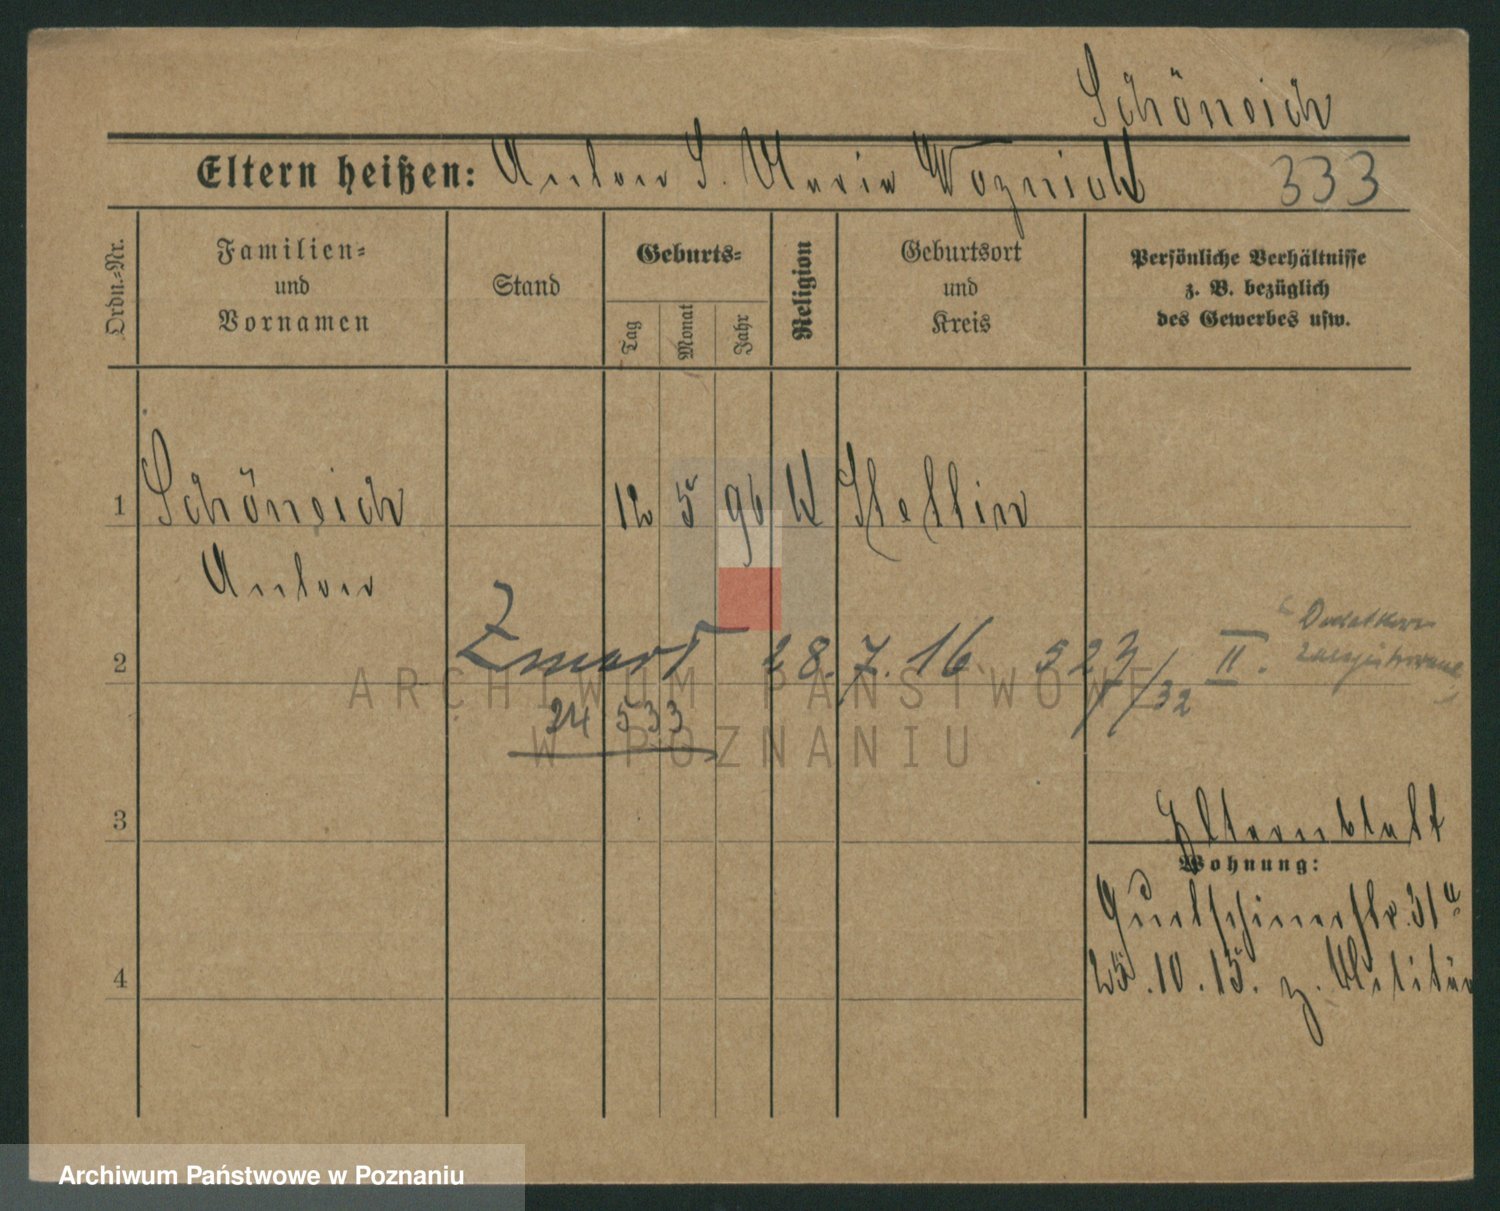 Schöneich
Eltern heißen: Anton S. Maria Wozniak 333
Ordn.-Nr.
Familien-
und
Vornamen
Stand
Geburts-
Tag
Monat
Jahr
Religion
Geburtsort
und
Kreis
Persönliche Verhältnisse
z. B. bezüglich
des Gewerbes usw.
1 Schöneich 12 5 96 k Stettin
Anton
2 Zmarł 28.7.16 523/32 II. Dodatkowo
24 5 33
3 Elternblatt
Wohnung:
Gurtschinerstr. 31a
4 25.10.15. z. Militär
ARCHIWUM PAŃSTWOWE
W POZNANIU
Archiwum Państwowe w Poznaniu